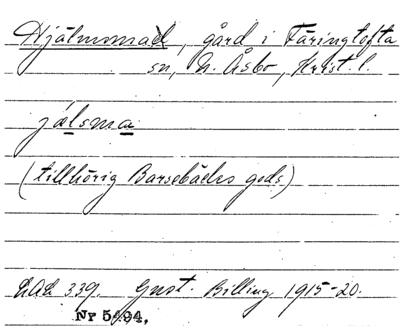 Hjälmomad, gård i Färingtofta
sn, N. Åsbo, Krist. l.
jálsma
(tillhörig Barsebäcks gods)
LAL 339. Gust. Billing 1915-20.
Nr 5494.